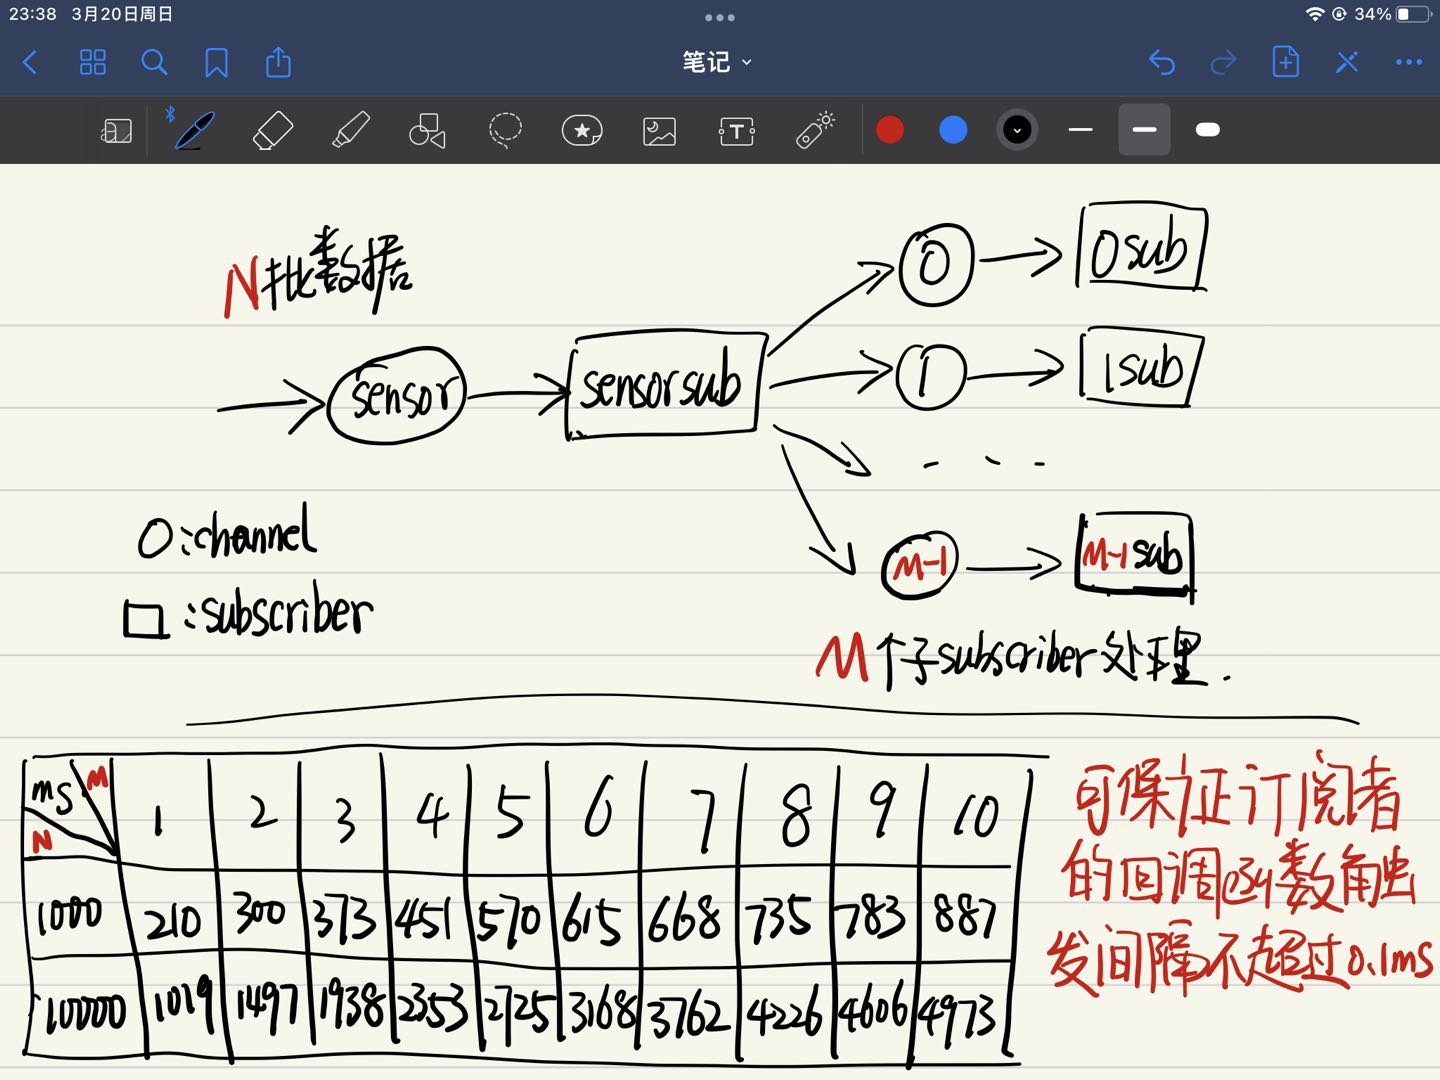 23:38 3月20日周日
34%
笔记
N批数据
sensor
sensorsub
0
0sub
1
1sub
M-1
M-1sub
O:channel
:subscriber
M个子subscriber处理.
ms M 1 2 3 4 5 6 7 8 9 10
N
1000 210 300 373 451 570 615 668 735 783 887
10000 1019 1497 1938 2353 2725 3168 3762 4226 4606 4973
可保证订阅者
的回调 数触
发间隔不超过0.1ms